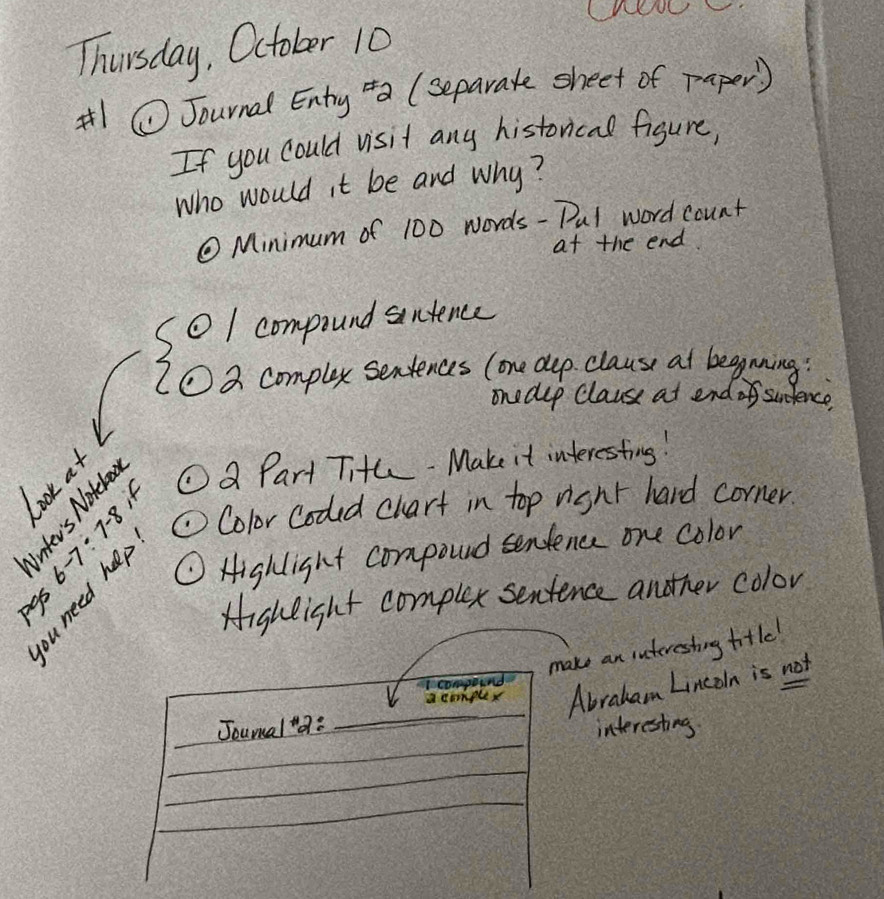 Thursday, October 10
#1 Journal Entry #2 (separate sheet of paper!)
If you could visit any historical figure,
who would it be and why?
Minimum of 100 words - Put word count
at the end.
1 compound sentence
2 complex sentences (one dep. clause at beginning;
one dep clause at end of sentence.
Look at
Winter's Notebook
pgs 6-7; 7-8 if
you need help!
2 Part Title - Make it interesting!
Color Coded Chart in top right hand corner.
Highlight compound sentence one color
Highlight complex sentence another color
make an interesting title!
Abraham Lincoln is not
interesting.
1 compound
2 complex
Journal #2: